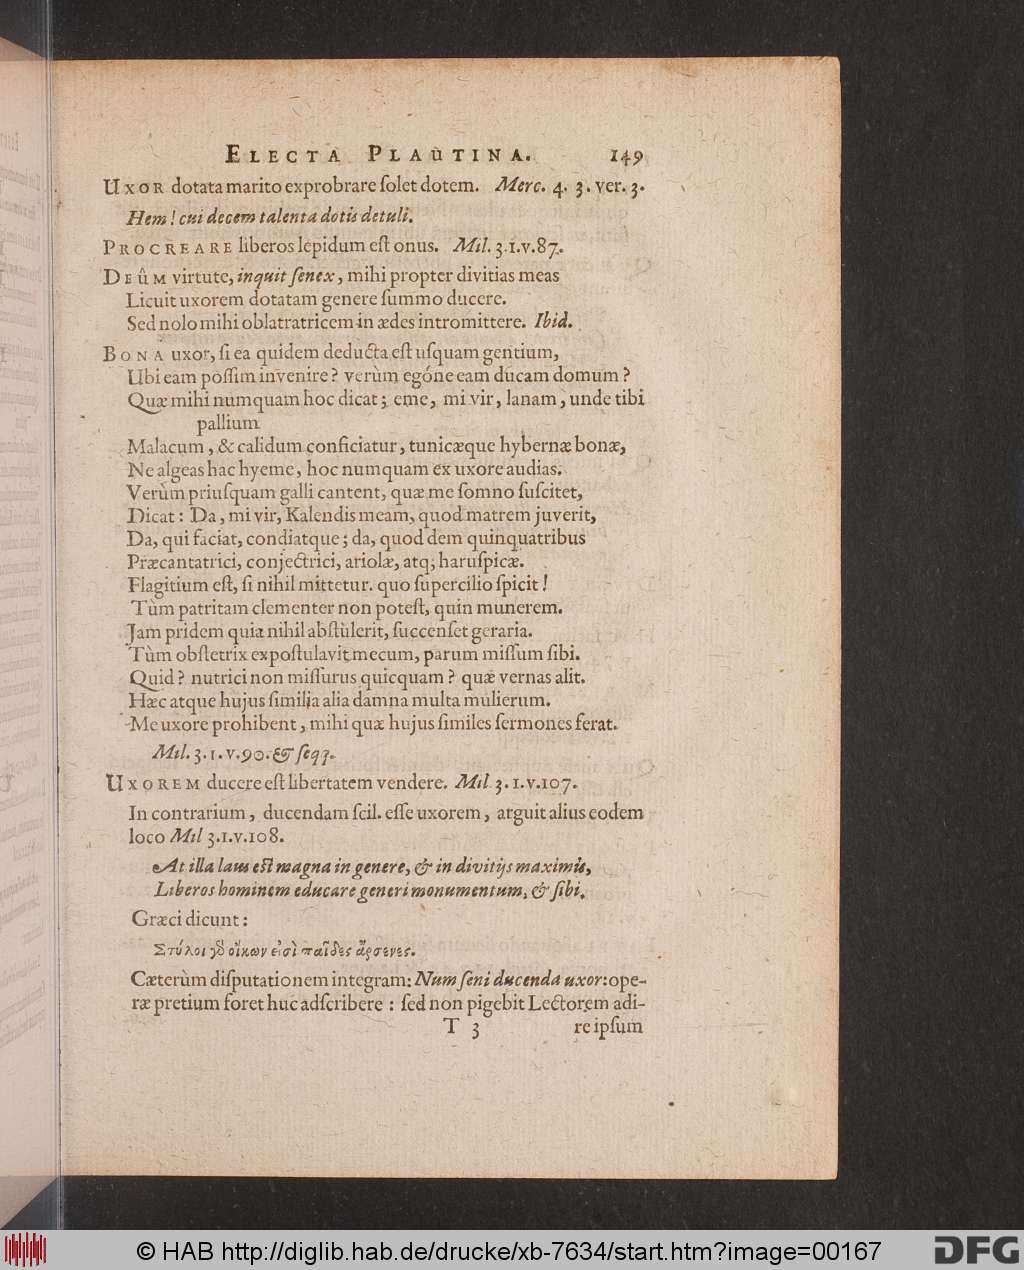 ELECTA PLAUTINA. 149
UXOR dotata marito exprobrare ſolet dotem. Merc. 4. 3. ver. 3.
Hem! cui decem talenta dotis detuli.
PROCREARE liberos lepidum eſt onus. Mil. 3.1.v.87.
DEÛM virtute, inquit ſenex, mihi propter divitias meas
Licuit uxorem dotatam genere ſummo ducere.
Sed nolo mihi oblatratricem in ædes intromittere. Ibid.
BONA uxor, ſi ea quidem deducta eſt uſquam gentium,
Ubi eam poſſim invenire? verùm egóne eam ducam domum?
Quæ mihi numquam hoc dicat; eme, mi vir, lanam, unde tibi
pallium
Malacum, & calidum conficiatur, tunicæque hybernæ bonæ,
Ne algeas hac hyeme, hoc numquam ex uxore audias.
Verùm priuſquam galli cantent, quæ me ſomno ſuſcitet,
Dicat: Da, mi vir, Kalendis meam, quod matrem juverit,
Da, qui faciat, condiatque; da, quod dem quinquatribus
Præcantatrici, conjectrici, ariolæ, atq; haruſpicæ.
Flagitium eſt, ſi nihil mittetur. quo ſupercilio ſpicit!
Tùm patritam clementer non poteſt, quin munerem.
Jam pridem quia nihil abſtùlerit, ſuccenſet geraria.
Tùm obſtetrix expoſtulavit mecum, parum miſſum ſibi.
Quid? nutrici non miſſurus quicquam? quæ vernas alit.
Hæc atque hujus ſimilia alia damna multa mulierum
Me uxore prohibent, mihi quæ hujus ſimiles ſermones ferat.
Mil. 3.1.v.90. & ſeqq.
UXOREM ducere eſt libertatem vendere. Mil 3.1.v.107.
In contrarium, ducendam ſcil. eſſe uxorem, arguit alius eodem
loco Mil 3.1.v.108.
At illa laus eſt magna in genere, & in divitijs maximis,
Liberos hominem educare generi monumentum, & ſibi.
Græci dicunt:
Στύλοι γὸ οἴκων εἰσὶ παῖδες ἄρσενες.
Cæterùm diſputationem integram: Num ſeni ducenda uxor: ope-
ræ pretium foret huc adſcribere: ſed non pigebit Lectorem adi-
T 3 re ipſum
© HAB http://diglib.hab.de/drucke/xb-7634/start.htm?image=00167
DFG